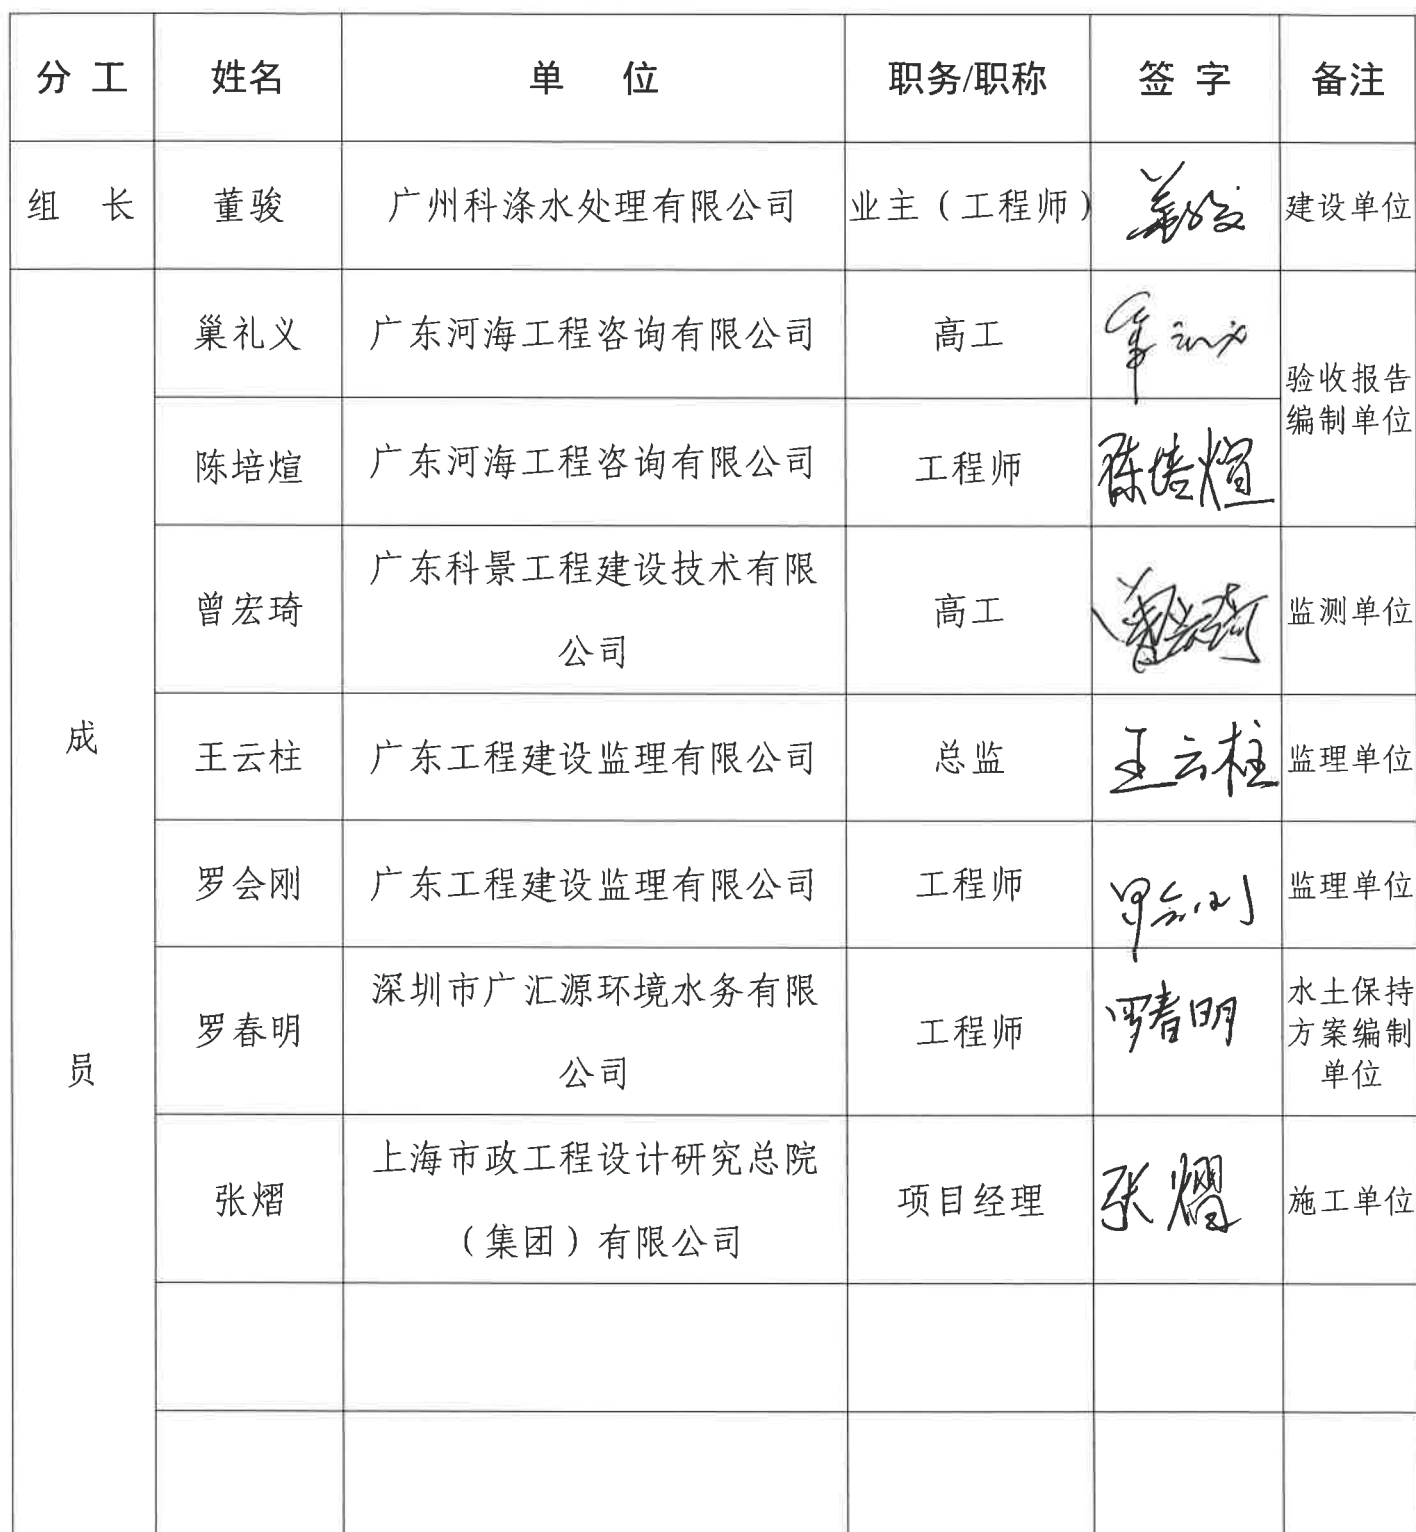 分 工 姓名 单 位 职务/职称 签 字 备注
组 长 董骏 广州科涤水处理有限公司 业主（工程师） 董骏 建设单位
巢礼义 广东河海工程咨询有限公司 高工
验收报告
编制单位
陈培煊 广东河海工程咨询有限公司 工程师 陈培煊
广东科景工程建设技术有限
曾宏琦 高工 曾宏琦 监测单位
公司
成
王云柱 广东工程建设监理有限公司 总监 王云柱 监理单位
罗会刚 广东工程建设监理有限公司 工程师 罗会刚 监理单位
深圳市广汇源环境水务有限
水土保持
罗春明 工程师 罗春明 方案编制
公司
单位
员
上海市政工程设计研究总院
张熠 项目经理 张熠 施工单位
（集团）有限公司